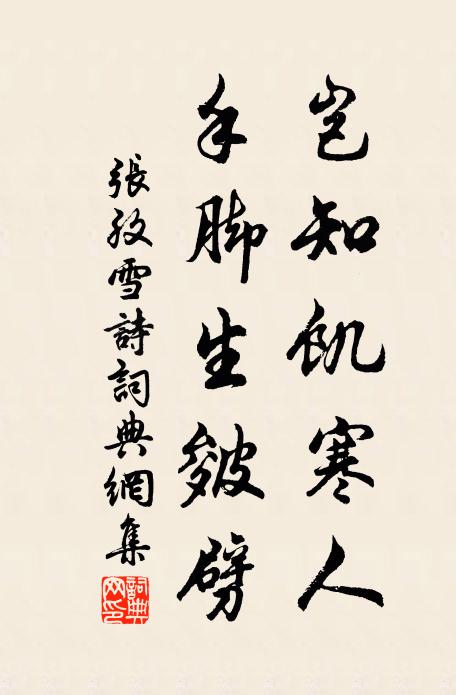 豈知飢寒人
手脚生皴劈
張孜雪詩詞典網集
詞典网印